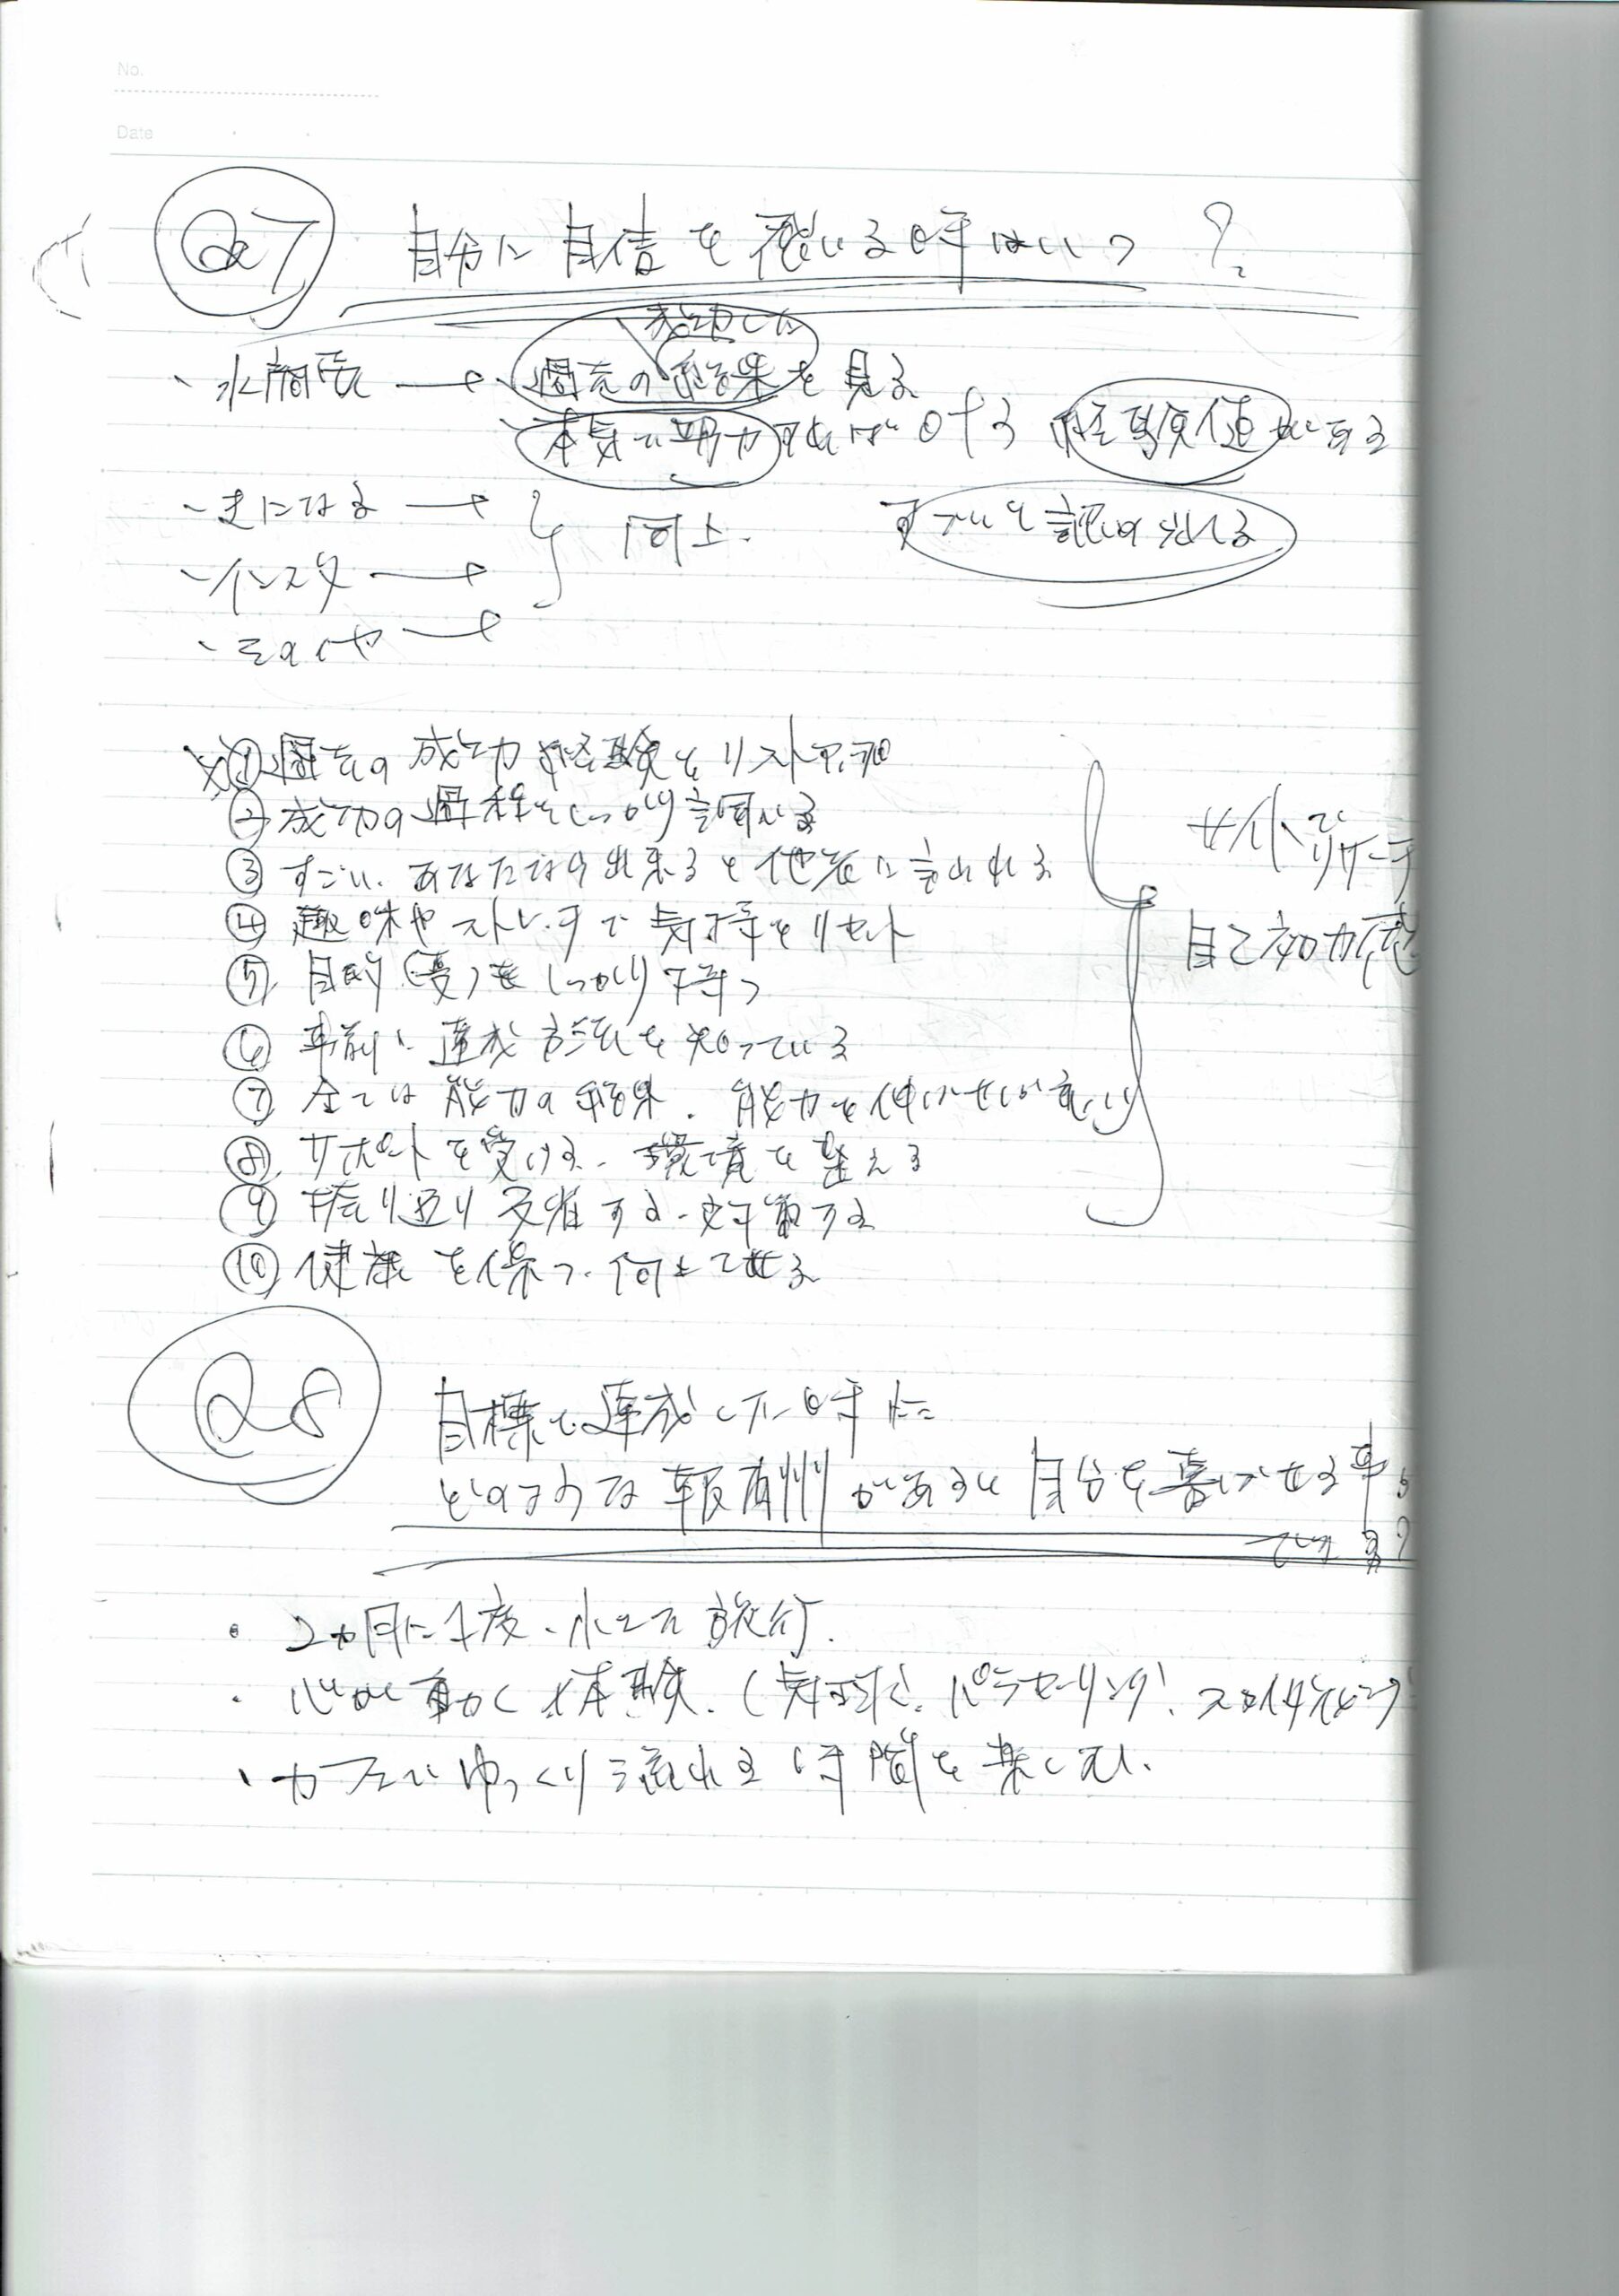 No.
Date
Q7 自分に自信を感じる時はいつ?
成功した
過去の結果を見る
本気で努力すれば 出来る 経験値がある
まになる →
同上.
すごいと認められる
インスタ →
その他 →
①過去の成功経験をリストアップ
②成功の過程をしっかり調べる
③すごい、あなたなら出来ると他者に言われる
④趣味やストレッチで気持をリセット
⑤目的(夢)をしっかり持つ
⑥事前に達成方法を知っている
⑦全ては能力の結果. 能力を伸ばせば良い
⑧サポートを受ける、環境を整える
⑨振り返り反省する・対策する
⑩健康を保つ・向上させる
サイトでリサーチ
自己効力感
Q8 目標を達成した時に
どのような報酬があると自分を喜ばせる事が
できる?
・2ヵ月に1度、小さな旅行.
・心が動く体験.(気球、パラセーリング、スカイダイビング
・カフェでゆっくり流れる時間を楽しむ.